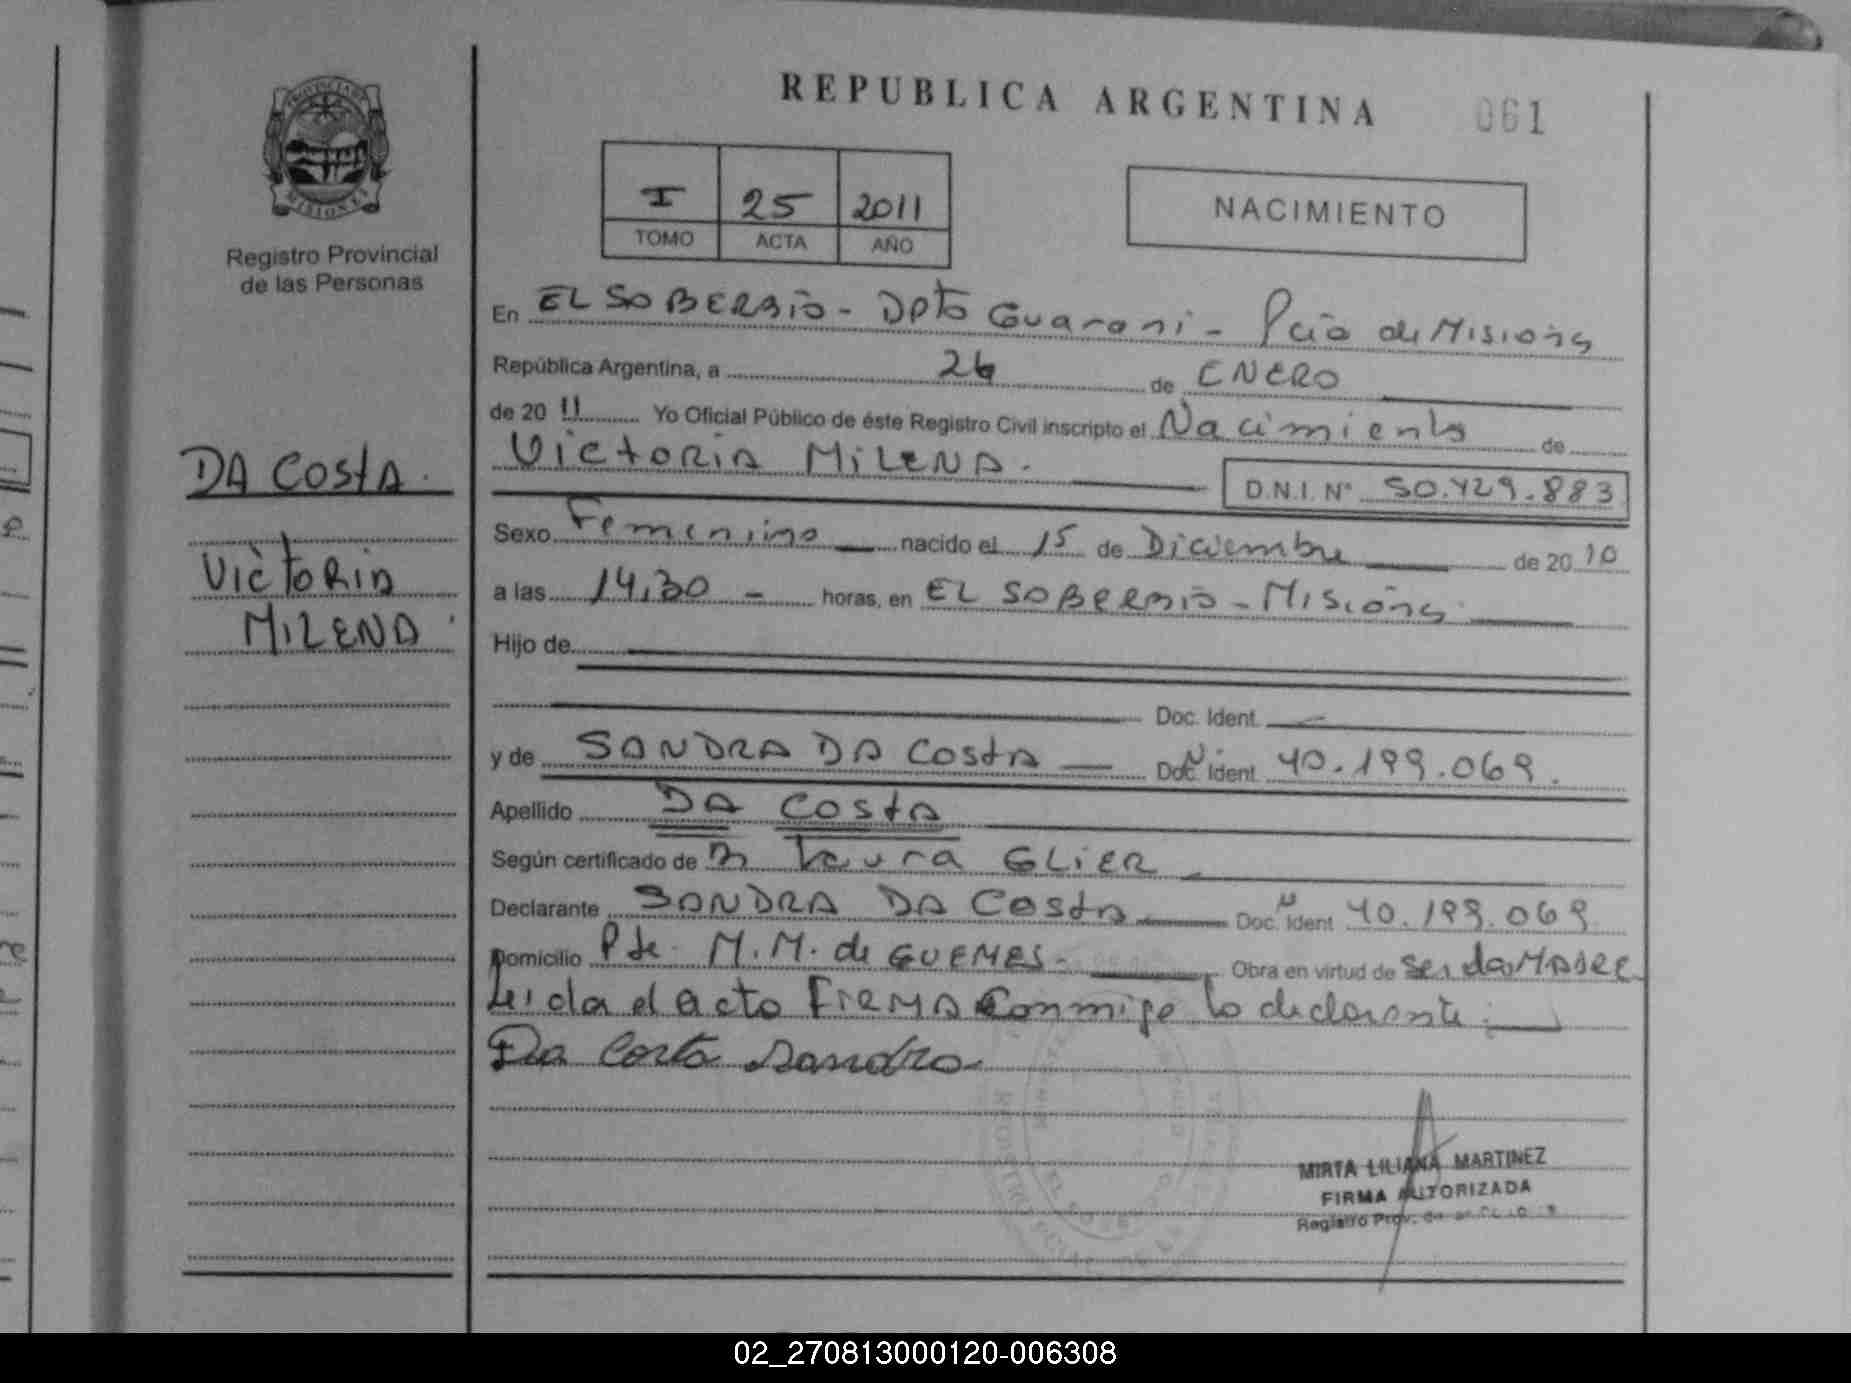 REPUBLICA ARGENTINA 061
PROVINCIA DE
MISIONES
Registro Provincial
de las Personas
I 25 2011
TOMO ACTA AÑO
NACIMIENTO
En EL SOBERBIO - Dpto Guarani - Pcia de Misiones
República Argentina, a 26 de ENERO
de 20 11 Yo Oficial Público de éste Registro Civil inscripto el Nacimiento de
VICTORIA MILENA.
D.N.I. N° 50.429.883
DA COSTA.
VICTORIA
MILENA
Sexo Femenino nacido el 15 de Diciembre de 20 10
a las 14,30 - horas, en EL SOBERBIO - Misiones
Hijo de
Doc. Ident.
y de SANDRA DA COSTA Doc. Ident 40.199.069.
Apellido DA COSTA
Según certificado de Laura GLIER
Declarante SANDRA DA COSTA Doc. Ident 40.199.069
Domicilio Pje. M.M. de GUEMES - Obra en virtud de Ser la MADRE
Leida el acta FIRMA Conmigo la declarante.
Da Costa Sandra
MIRTA LILIANA MARTINEZ
FIRMA AUTORIZADA
Registro Prov. de
02_270813000120-006308